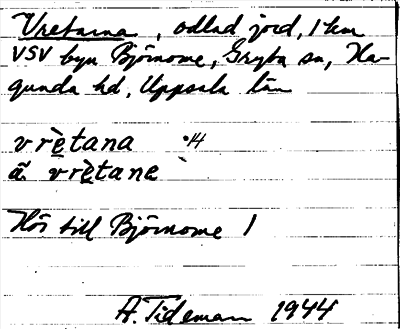 Vretarna, odlad jord, 1 km
VSV byn Björnome, Gryta sn, Ha-
gunda hd, Uppsala län
vrè̱tana ·14
ã. vrè̱tane
Hör till Björnome 1
A. Tideman 1944